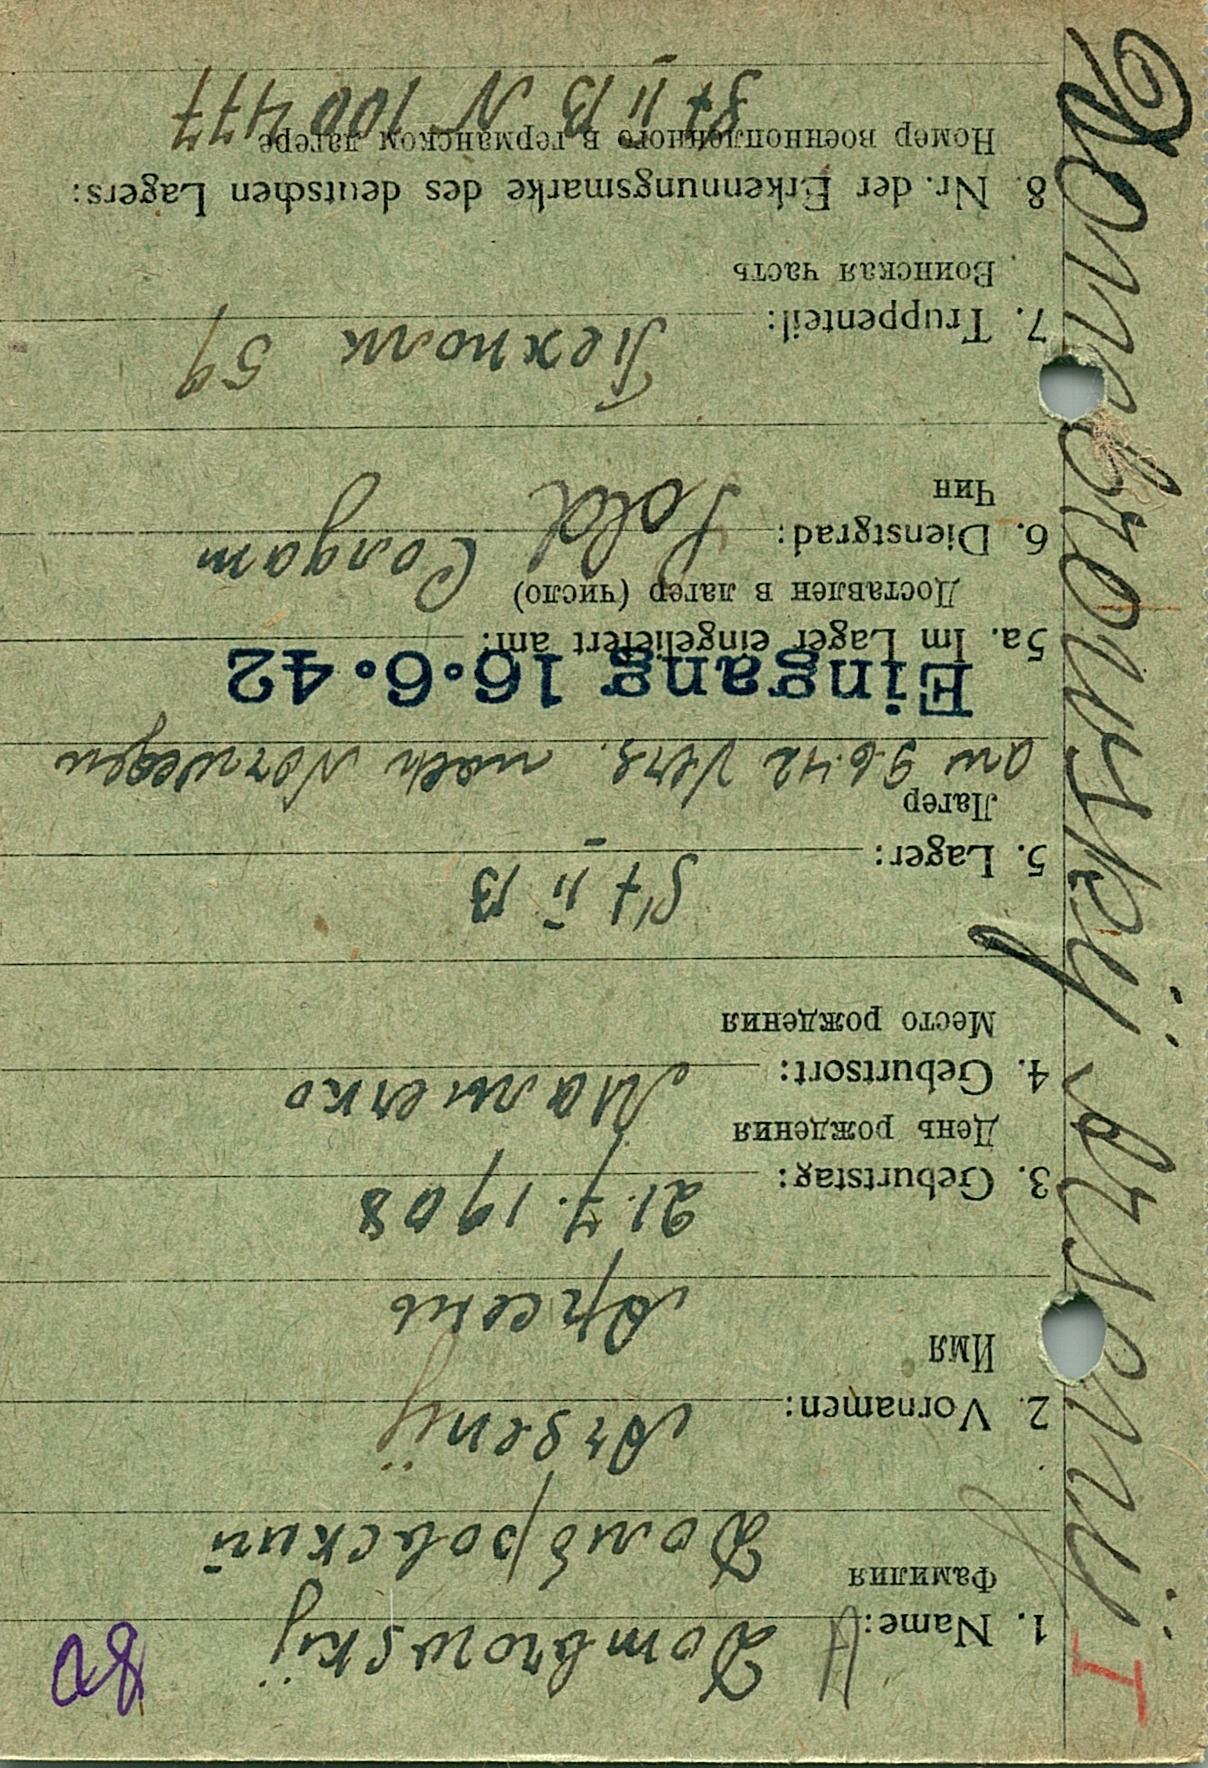 Dombrowskij Arsenij
I
80
1. Name: Dombrowskij
Фамилия Домбровский
2. Vornamen: Arsenij
Имя Арсень
3. Geburtstag: 21.7.1908
День рождения
4. Geburtsort:
Место рождения
5. Lager: St II B
Лагер
am 9.6.42 Vers. nach Norwegen
Eingang 16.6.42
5a. Im Lager eingeliefert am:
Доставлен в лагер (число)
6. Dienstgrad: Sold Солдат
Чин
7. Truppenteil: Пехполк 59
Воинская часть
8. Nr. der Erkennungsmarke des deutschen Lagers:
Номер военнопленного в германском лагере
St II B N 100477